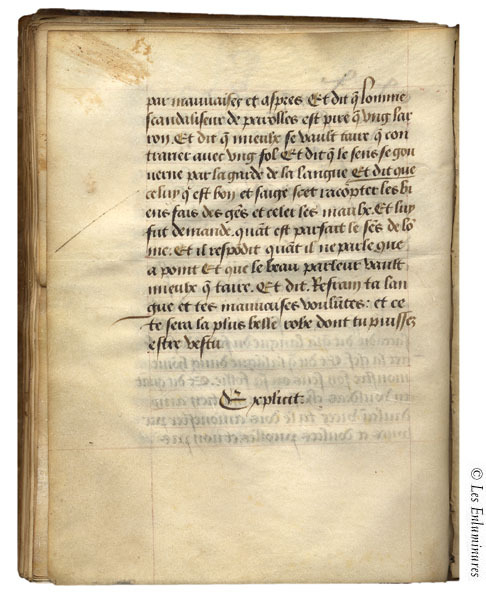 par mauvaises et aspres Et dit q̄ lomme
scandaliseur de parolles est pire q̄ ung lar
ron. Et dit q̄ mieulx se vault taire q̄ con
trarier avec ung fol Et dit q̄ le sens se gou
verne par la garde de la langue Et dit que
celuy q̄ est bon et saige scet racōpter les bi
ens fais des gēs et celer les maulx. Et luy
fut demande. quāt est parfait le sēs de lō
me. Et il respōdit quāt il ne parle que
a point Et que le beau parleur vault
mieulx q̄ taire. Et dit. Refrain ta lan
gue et tes mauvaises voulūtes: et ce
te sera la plus belle robe dont tu puisses
estre vestu
Explicit:
© Les Enluminures